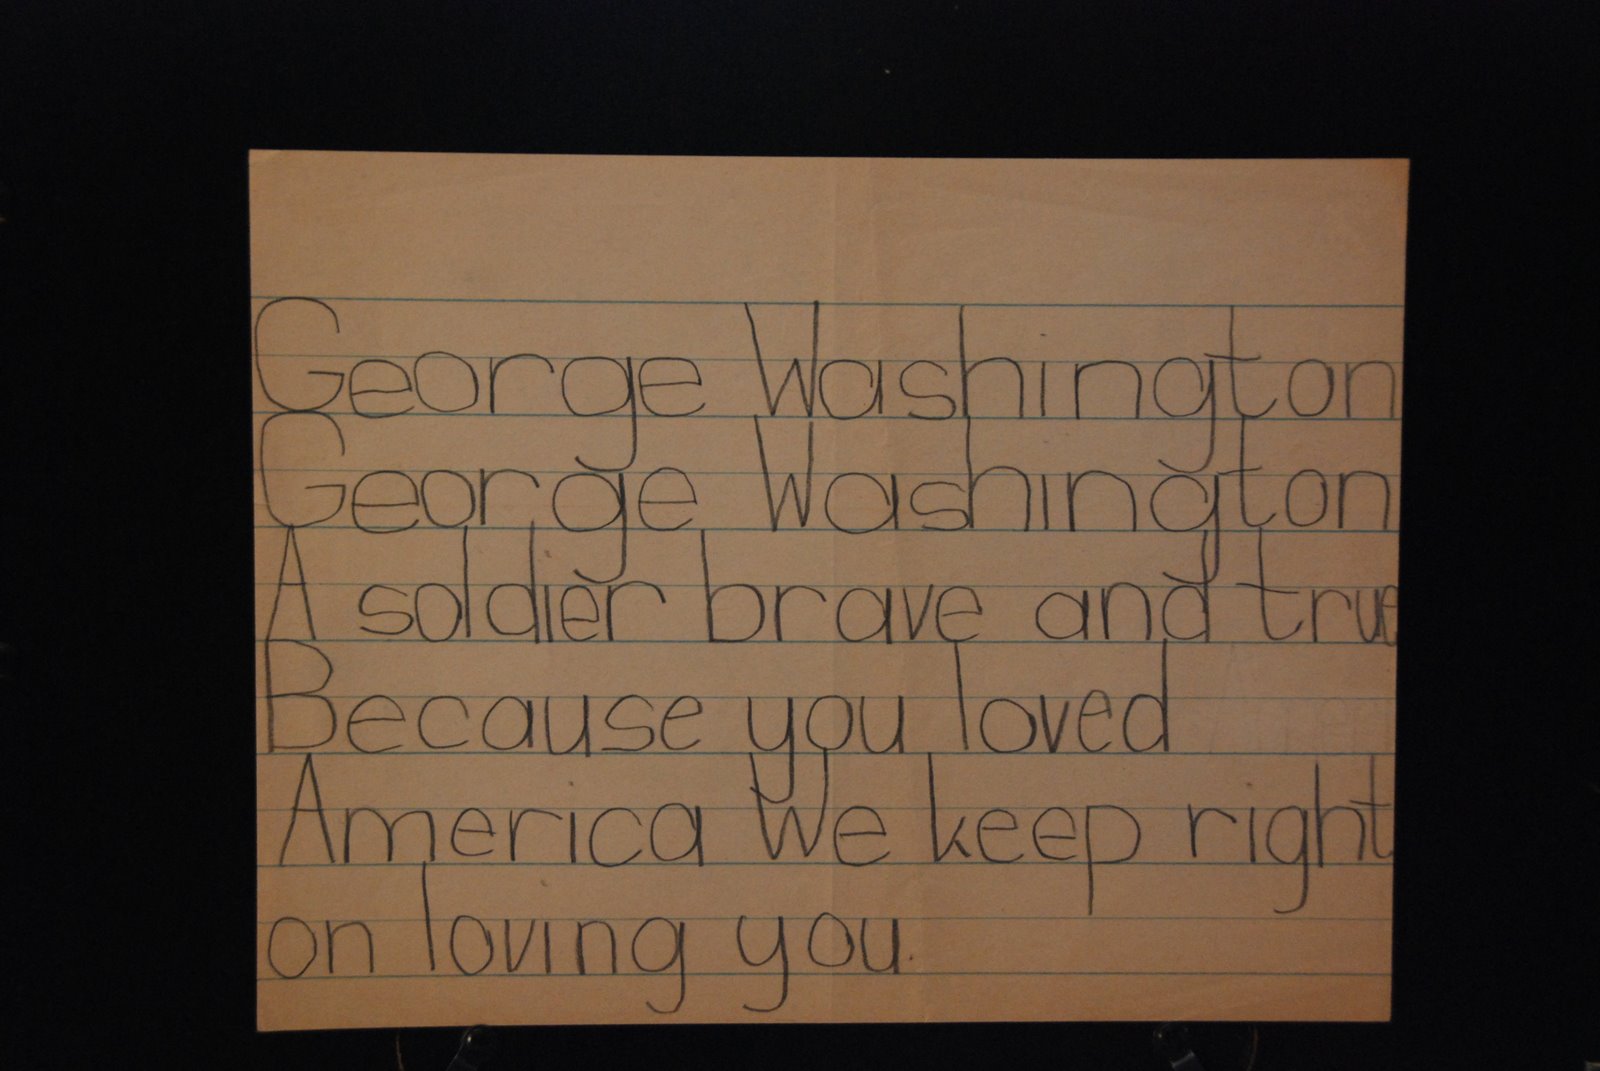 George Washington
George Washington
A soldier brave and true
Because you loved
America We keep right
on loving you.